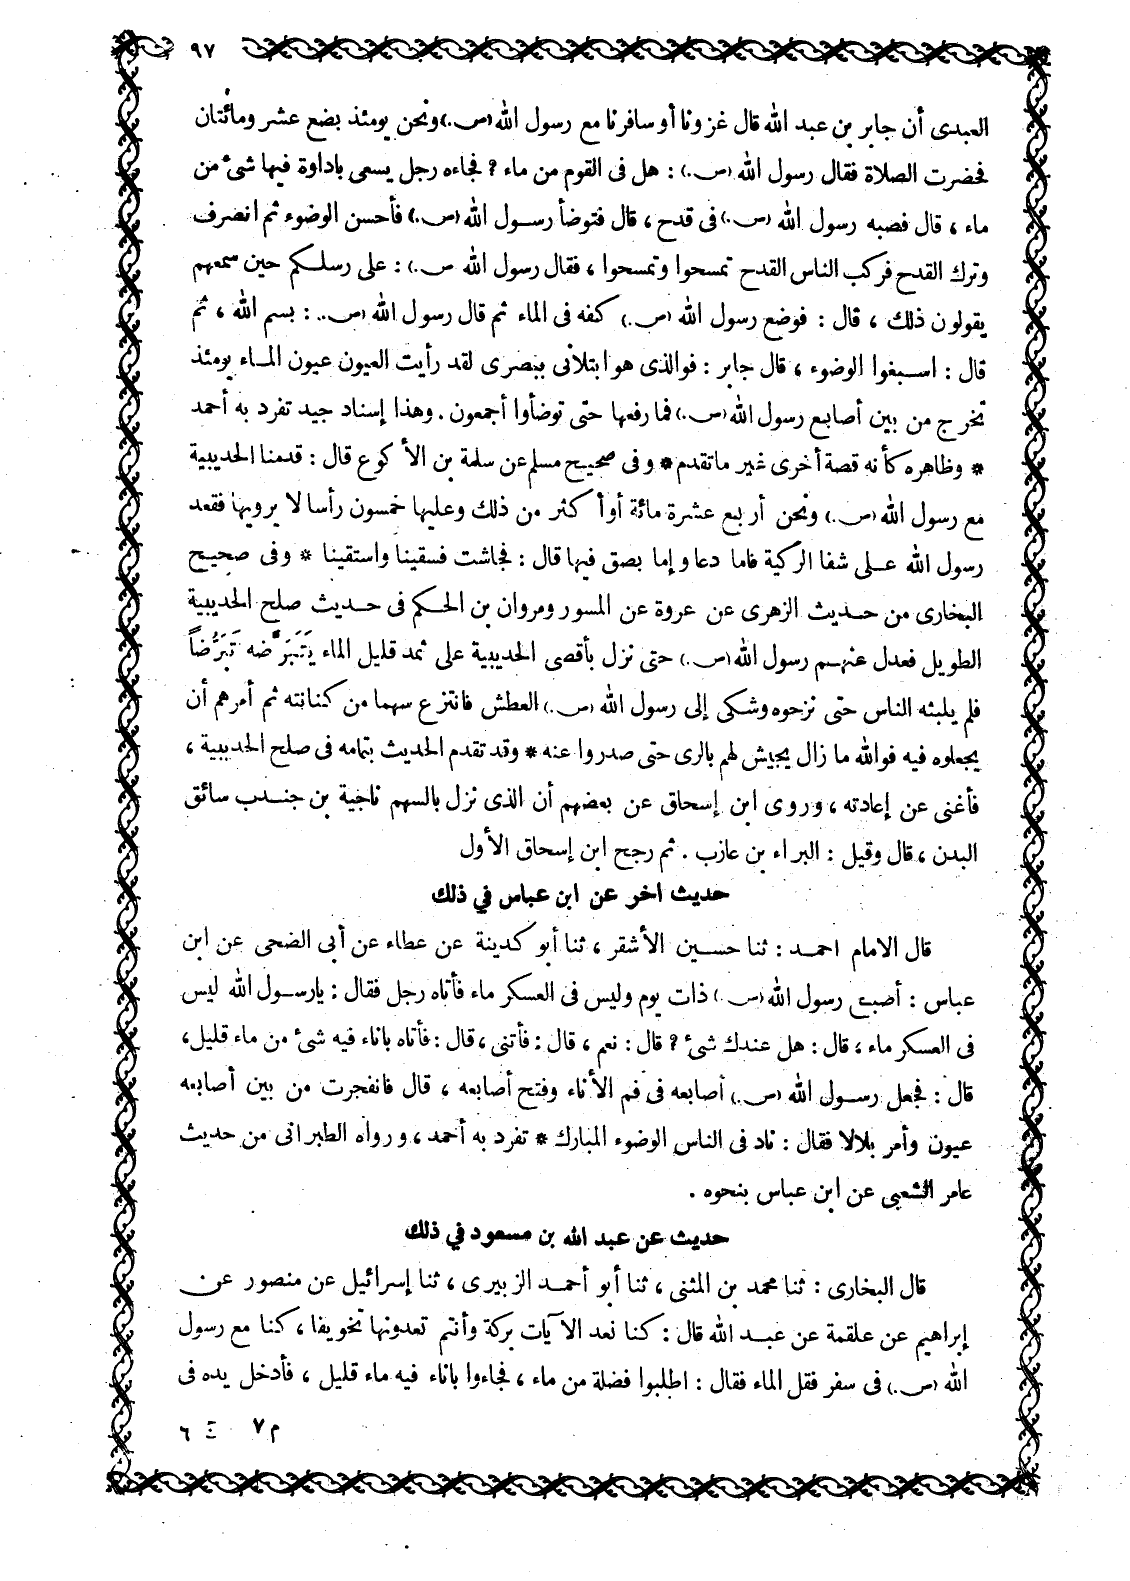 ٩٧
العبدى أن جابر بن عبد الله قال غزونا أو سافرنا مع رسول الله (ص.) ونحن يومئذ بضع عشر ومائتان
فحضرت الصلاة فقال رسول الله (ص.) : هل فى القوم من ماء ? فجاءه رجل يسعى باداوة فيها شئ من
ماء ، قال فصبه رسول الله (ص.) فى قدح ، قال فتوضأ رسول الله (ص.) فأحسن الوضوء ثم انصرف
وترك القدح فركب الناس القدح تمسحوا وتمسحوا ، فقال رسول الله ص.) : على رسلكم حين سمعهم
يقولون ذلك ، قال : فوضع رسول الله (ص.) كفه فى الماء ثم قال رسول الله (ص.. : بسم الله ، ثم
قال : اسبغوا الوضوء ، قال جابر : فوالذى هو ابتلانى ببصرى لقد رأيت العيون عيون الماء يومئذ
تخرج من بين أصابع رسول الله (ص.) فما رفعها حتى توضأوا أجمعون . وهذا إسناد جيد تفرد به أحمد
* وظاهره كأنه قصة أخرى غير ما تقدم * وفى صحيح مسلم عن سلمة بن الأكوع قال : قدمنا الحديبية
مع رسول الله (ص.) ونحن أربع عشرة مائة أو أكثر من ذلك وعليها خمسون رأسا لا يرويها فقعد
رسول الله على شفا الركية فاما دعا وإما بصق فيها قال : فجاشت فسقينا واستقينا * وفى صحيح
البخارى من حديث الزهرى عن عروة عن المسور ومروان بن الحكم فى حديث صلح الحديبية
الطويل فعدل عنهم رسول الله (ص.) حتى نزل بأقصى الحديبية على ثمد قليل الماء يَتَبَرَّضه تَبَرُّضاً
فلم يلبثه الناس حتى نزحوه وشكى إلى رسول الله (ص.) العطش فانتزع سهما من كنانته ثم أمرهم أن
يجعلوه فيه فوالله ما زال يجيش لهم بالرى حتى صدروا عنه * وقد تقدم الحديث بتمامه فى صلح الحديبية ،
فأغنى عن إعادته ، وروى ابن إسحاق عن بعضهم أن الذى نزل بالسهم ناجية بن جندب سائق
البدن ، قال وقيل : البراء بن عازب . ثم رجح ابن إسحاق الأول
حديث اخر عن ابن عباس في ذلك
قال الامام احمد : ثنا حسين الأشقر ، ثنا أبو كدينة عن عطاء عن أبى الضحى عن ابن
عباس : أصبح رسول الله (ص.) ذات يوم وليس فى العسكر ماء فأتاه رجل فقال : يا رسول الله ليس
فى العسكر ماء ، قال : هل عندك شئ ? قال : نعم ، قال : فأتنى ، قال : فأتاه باناء فيه شئ من ماء قليل،
قال : فجعل رسول الله (ص.) أصابعه فى فم الأناء وفتح أصابعه ، قال فانفجرت من بين أصابعه
عيون وأمر بلالا فقال : ناد فى الناس الوضوء المبارك * تفرد به أحمد ، ورواه الطبرانى من حديث
عامر الشعبى عن ابن عباس بنحوه .
حديث عن عبد الله بن مسعود في ذلك
قال البخارى : ثنا محمد بن المثنى ، ثنا أبو أحمد الزبيرى ، ثنا إسرائيل عن منصور عن
إبراهيم عن علقمة عن عبد الله قال : كنا نعد الآيات بركة وأنتم تعدونها تخويفا ، كنا مع رسول
الله (ص.) فى سفر فقل الماء فقال : اطلبوا فضلة من ماء ، فجاءوا باناء فيه ماء قليل ، فأدخل يده فى
م ٧ ج ٦